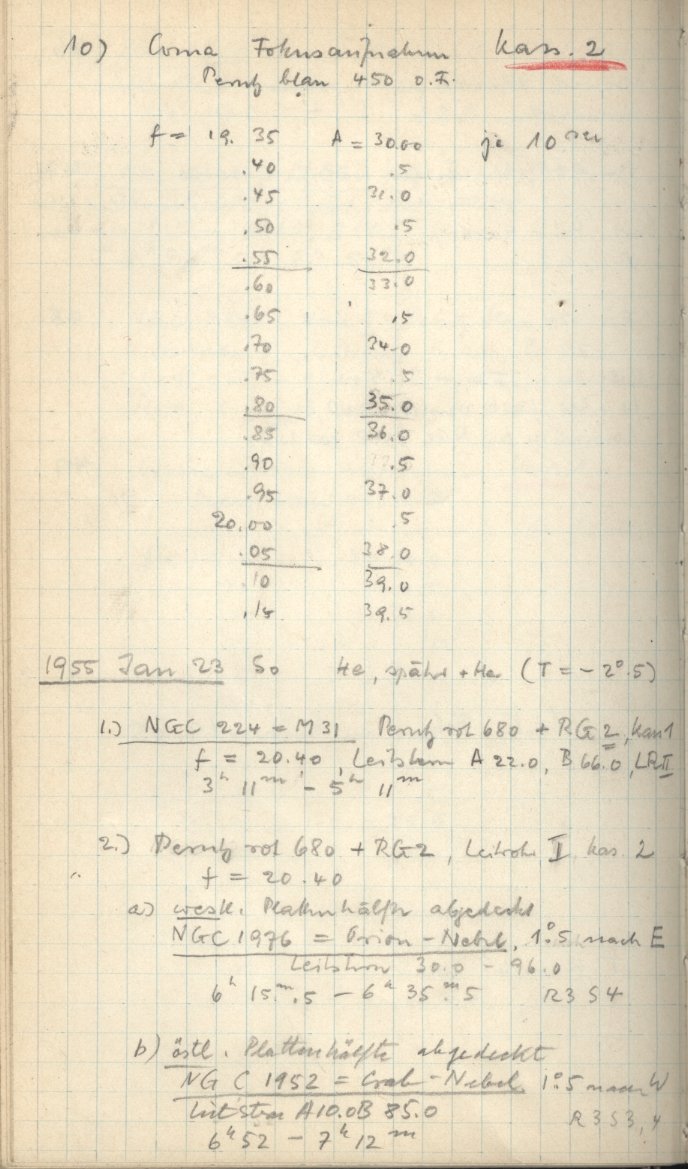 10) Coma Fokusaufnahmen Kass. 2
Perutz blau 450 o.F.
f = 19.35 A = 30.00 je 10 sec
.40 .5
.45 31.0
.50 .5
.55 32.0
.60 33.0
.65 .5
.70 34.0
.75 .5
.80 35.0
.85 36.0
.90 .5
.95 37.0
20.00 .5
.05 38.0
.10 39.0
.15 39.5
1955 Jan 23 So He, später + (T = -2°.5)
1.) NGC 224 = M31 Perutz rot 680 + RG2, Kass 1
f = 20.40, Leitstern A 22.0, B 66.0, LR II
3h 11m - 5h 11m
2.) Perutz rot 680 + RG2, Leitrohr II Kas. 2
f = 20.40
a) westl. Plattenhälfte abgedeckt
NGC 1976 = Orion-Nebel, 1°.5 nach E
Leitstern 30.0 - 96.0
6h 15m.5 - 6h 35m.5 R3 S4
b) östl. Plattenhälfte abgedeckt
NGC 1952 = Crab-Nebel 1°.5 nach W
Leitstern A10.0 B 85.0
R3 S3,4
6h 52 - 7h 12m